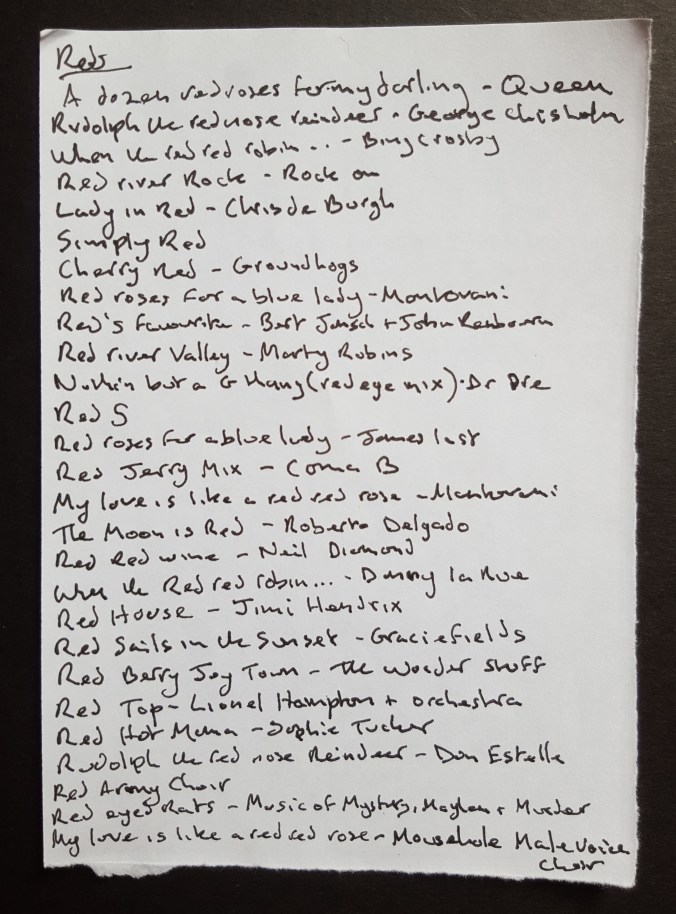 Reds
A dozen red roses for my darling - Queen
Rudolph the red nose reindeer - George Chisholm
When the red red robin .. - Bing Crosby
Red river Rock - Rock on
Lady in Red - Chris de Burgh
Simply Red
Cherry Red - Groundhogs
Red roses for a blue lady - Mantovani
Red's favourite - Bert Jansch + John Renbourn
Red river Valley - Marty Robins
Nuthin but a G thang (red eye mix) - Dr Dre
Red S
Red roses for a blue lady - James last
Red Jerry Mix - Coma B
My love is like a red red rose - Mantovani
The Moon is Red - Roberto Delgado
Red Red wine - Neil Diamond
When the Red red robin... - Danny la Rue
Red House - Jimi Hendrix
Red Sails in the Sunset - Gracie fields
Red Berry Joy Town - the wonder stuff
Red Top - Lionel Hampton + orchestra
Red Hot Mama - Sophie Tucker
Rudolph the red nose Reindeer - Don Estelle
Red Army Choir
Red eyed Rats - Music of Mystery, Mayhem + Murder
My love is like a red red rose - Mousehole Male voice
choir